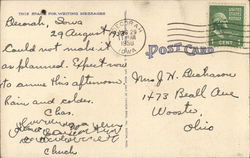 THIS SPACE FOR WRITING MESSAGES
Decorah, Iowa
29 August 1950
Could not make it
as planned. Expect now
to arrive this afternoon.
Rain and colder.
Chas.
Chuck
DECORAH
1950
IOWA
POST CARD
CENT
Mrs J H Dickason
1473 Beall Ave
Wooster
Ohio